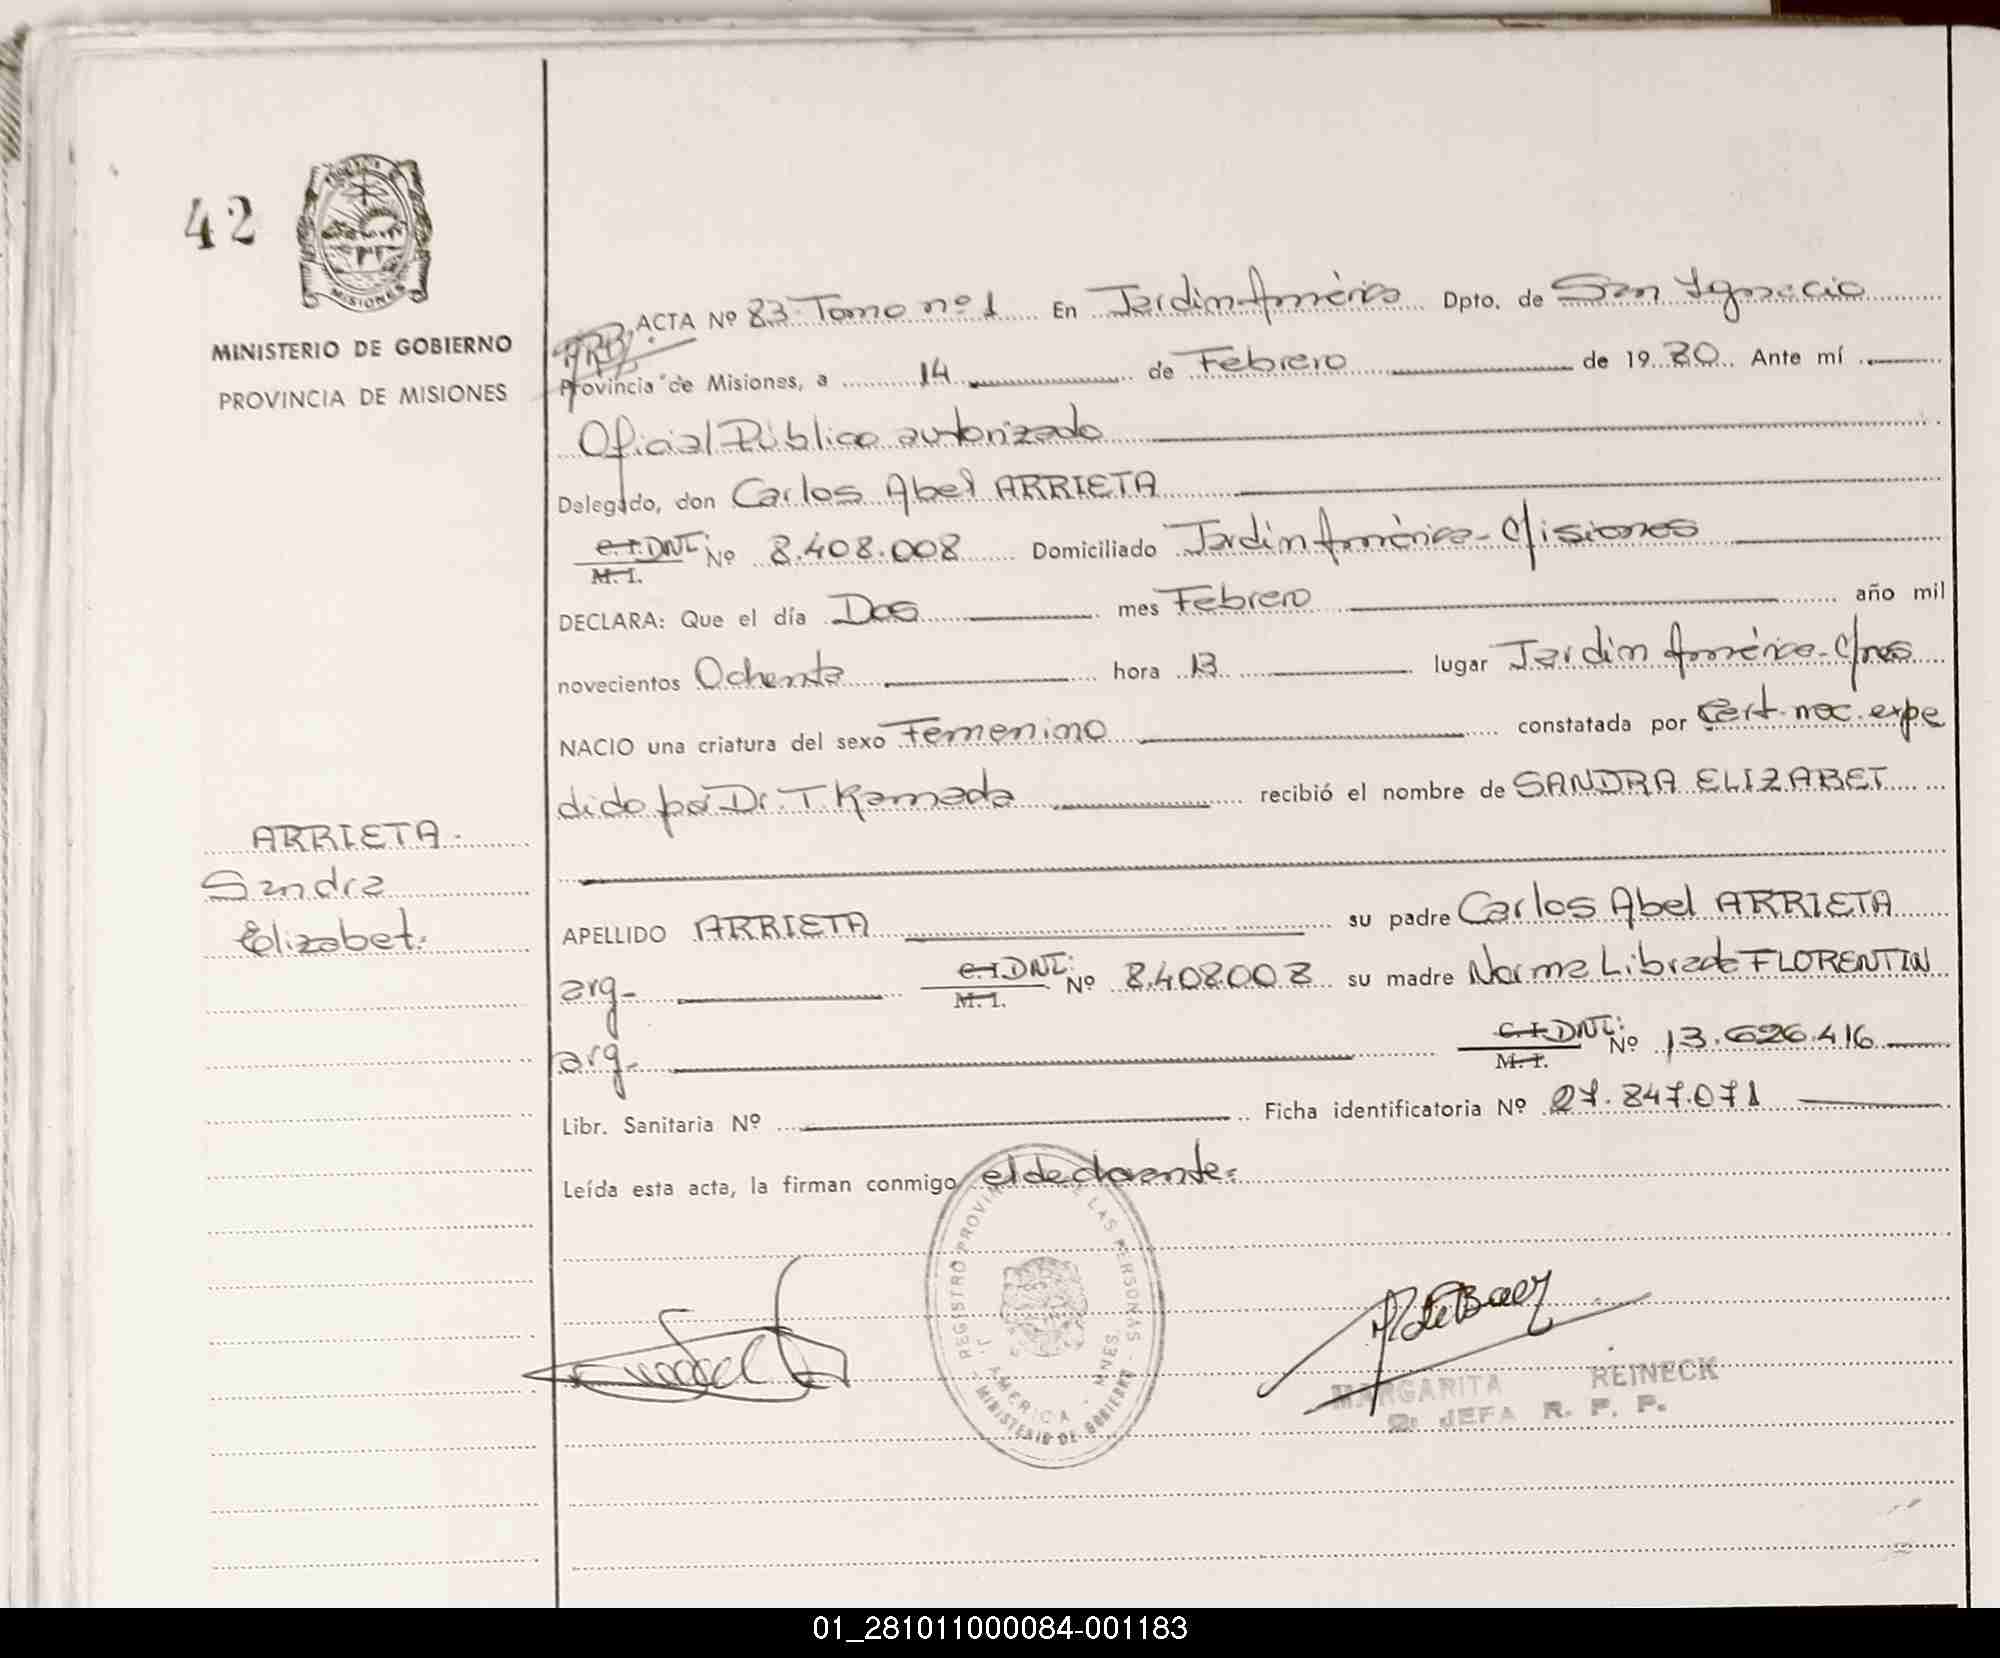 42
MISIONES
MINISTERIO DE GOBIERNO
PROVINCIA DE MISIONES
ACTA Nº 83 Tomo nº 1 En Jardin América Dpto. de San Ignacio
Provincia de Misiones, a 14 de Febrero de 1980 Ante mí
Oficial Público autorizado
Delegado, don Carlos Abel ARRIETA
C.I. DNI: M.I. Nº 8.408.008 Domiciliado Jardin América - Misiones
DECLARA: Que el día Dos mes Febrero año mil
novecientos Ochenta hora 13 lugar Jardin América - Mnes
NACIO una criatura del sexo Femenino constatada por Cert. nac. expe
dido por Dr. T. Kamada recibió el nombre de SANDRA ELIZABET
ARRIETA.
Sandra
Elizabet.
APELLIDO ARRIETA su padre Carlos Abel ARRIETA
arg- C.I DNI: M.I. Nº 8.408.008 su madre Norma Librada FLORENTIN
arg- C.I. DNI: M.I. Nº 13.626.416
Libr. Sanitaria Nº Ficha identificatoria Nº 27.847.071
Leída esta acta, la firman conmigo el declarante:
REGISTRO PROVIN LAS PERSONAS
J. AMERICA - MNES.
- MINISTERIO DE GOBIERNO -
MARGARITA REINECK
2: JEFA R. P. P.
01_281011000084-001183